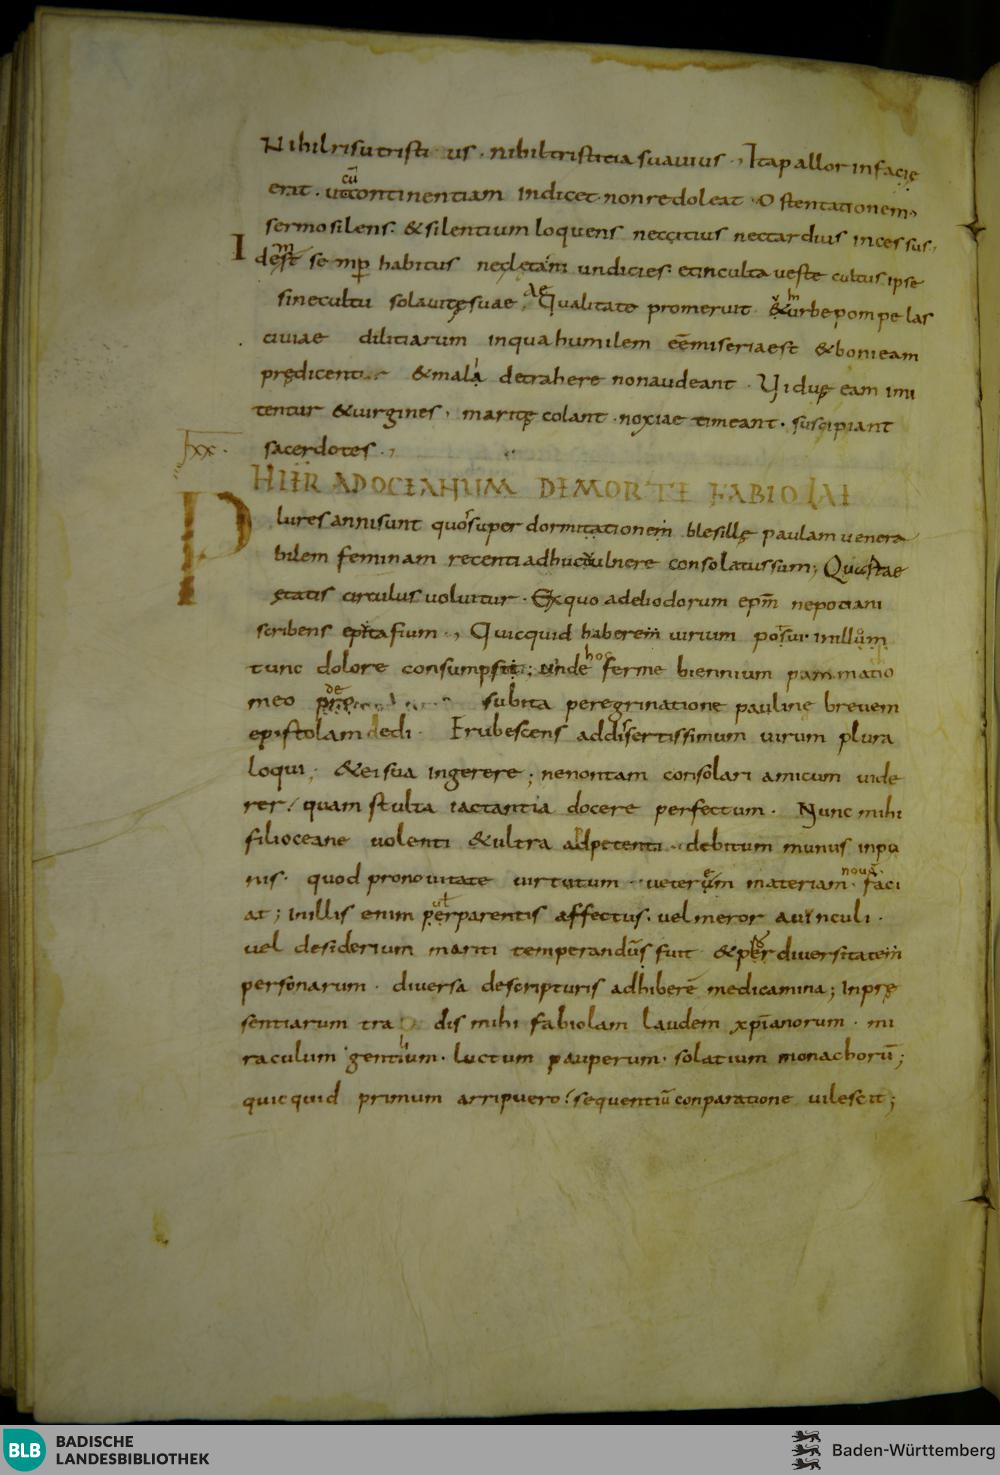 Nihil risu tristius · nihil tristitia suauius ·, Ita pallor in facie
erat · ut cū continentiam indicet · non redoleat · Ostentationem ·,
sermo silens · & silentium loquens nec citius nec tardius incessus,
Idem semp habitus neglectam undicies · et inculta ueste cultus ipse
sine cultu sola uitę suae ·, Qualitate promeruit · ut in urbe pompe las
ciuiae dilitiarum in qua humilem eē miseria est & boni eam
prędicent & mali detrahere non audeant · Uiduę eam imi
tentur & uirgines, maritę colant · noxiae timeant · suscipiant
sacerdotes ·,
lxx ·
HIER AD OCEANUM DE MORTE FABIOLAE
Plures anni sunt quod super dormitationem blesillę paulam uenera
bilem feminam recenti adhuc uulnere consolatus sum; Quistae
ętatis circulus uoluitur · Ex quo ad eliodorum epm nepotiani
scribens epitafium ·, Quicquid haberem uirium potui in illum
tunc dolore consumpsi; unde hoc ferme biennium pammatio
meo de subita peregrinatione paulinę breuem
epistolam dedi · Erubescens ad disertissimum uirum plura
loqui · & ei sua ingerere; ne non tam consolari amicum uide
rer / quam stulta iactantia docere perfectum · Nunc mihi
fili oceane uolenti & ultra adpetenti · debitum munus inpo
nis · quod pro nouitate uirtutum · ueterem materiam · nouā faci
at; In illis enim uel parentis affectus · uel meror auunculi ·
uel desiderium mariti temperandus fuit & pro diuersitate
personarum · diuersa de scripturis adhibere medicamina; In prę
sentiarum tra dis mihi fabiolam laudem xpianorum · mi
raculum gentium · luctum pauperum · solatium monachorū;
quicquid primum arripuero / sequentiū conparatione uilescit;
BLB BADISCHE
LANDESBIBLIOTHEK
Baden-Württemberg